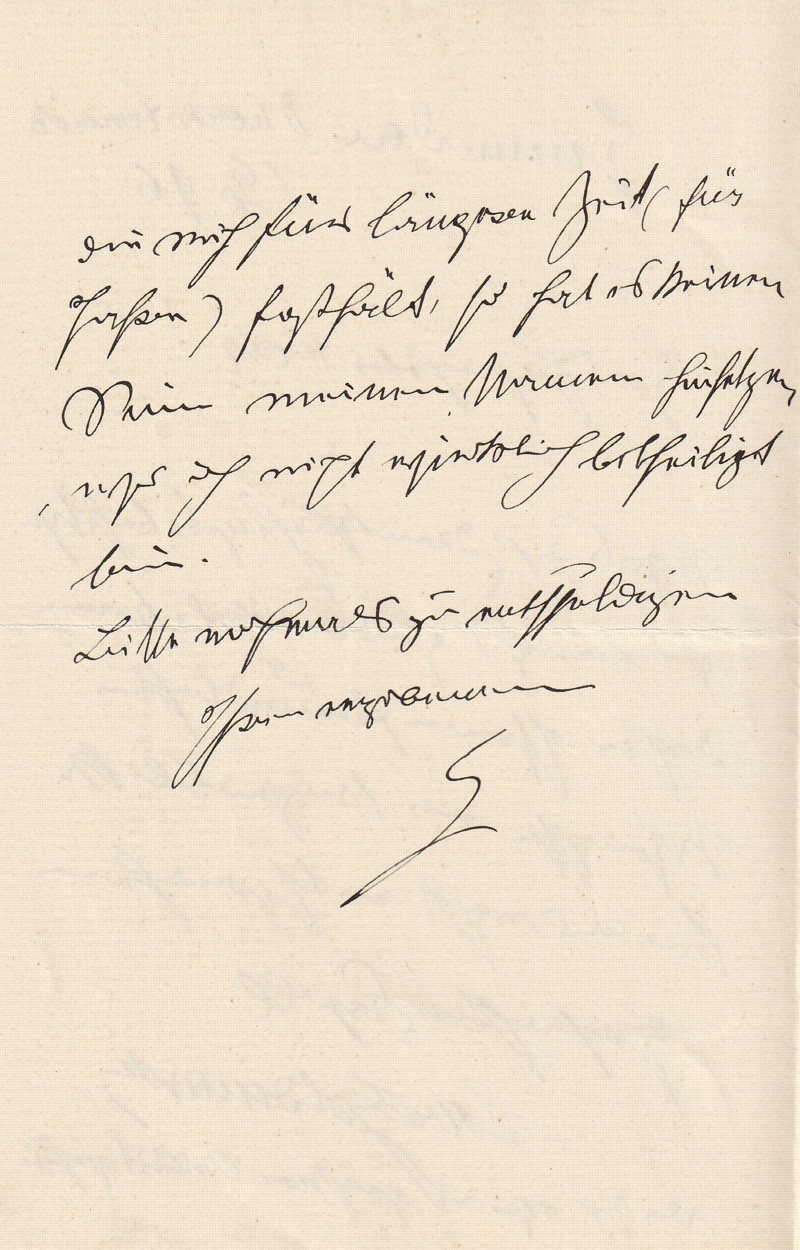 die mich für längere Zeit (für
Jahre) festhält, so hat es keinen
Sinn meinen Namen hinsetzen,
wo ich nicht wirklich betheiligt
bin.
Bitte nochmals zu entschuldigen
Ihren ergebenen